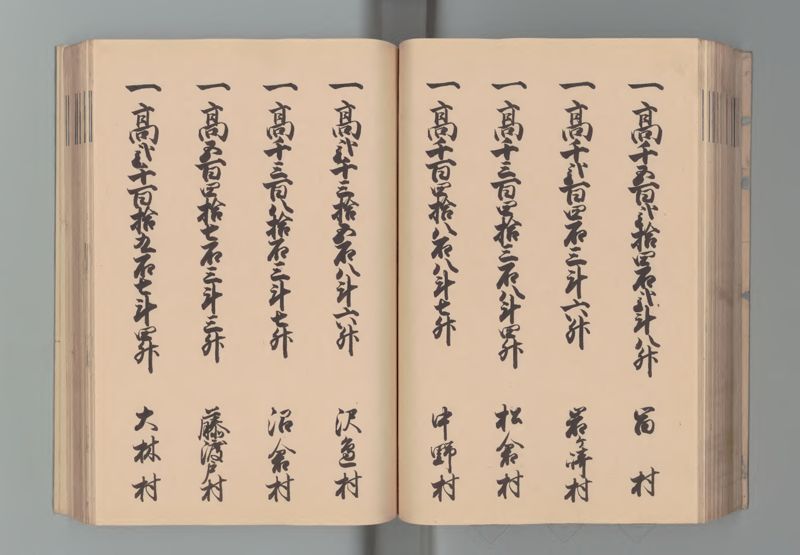 一高千五百弐拾四石弐斗八升 冨村
一高千弐百四石三斗六升 岩ケ崎村
一高千三百四拾三石八斗四升 松倉村
一高千百四拾八石八斗七升 中野村
一高弐千三拾五石八斗六升 沢邊村
一高千三百八拾石三斗七升 沼倉村
一高五百四拾七石三斗三升 藤渡戸村
一高弐千百拾九石七斗四升 大林村